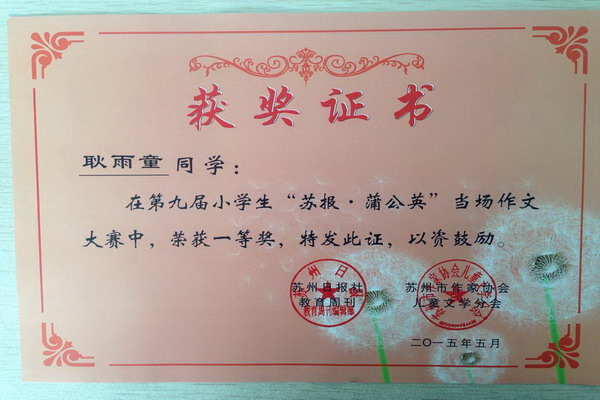 获奖证书
耿雨童同学：
在第九届小学生“苏报·蒲公英”当场作文
大赛中，荣获一等奖，特发此证，以资鼓励。
苏州日报社
教育周刊
教育周刊编辑部
苏州市作家协会
儿童文学分会
二〇一五年五月